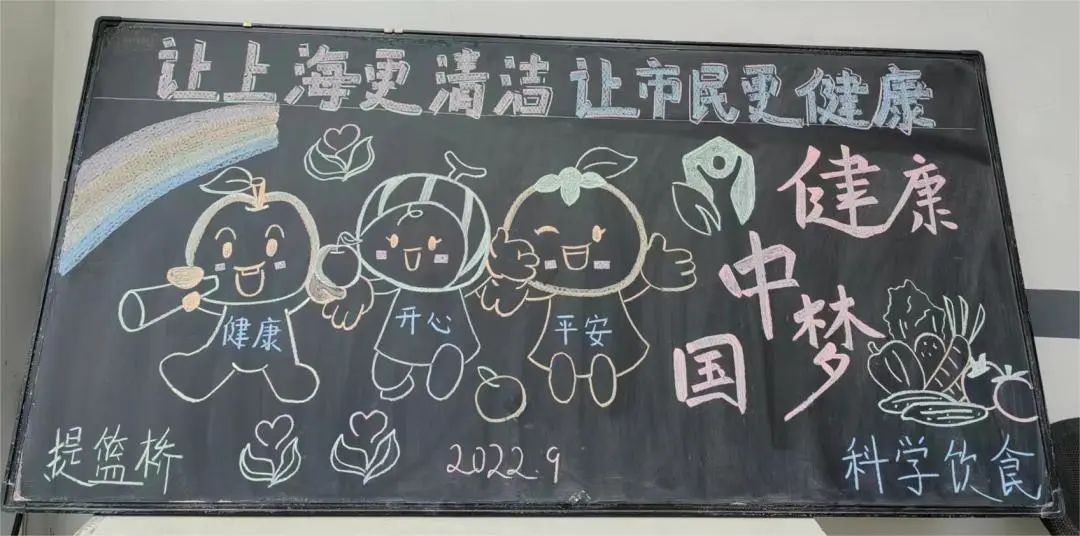 让上海更清洁 让市民更健康
健康
中
国
梦
健康
开心
平安
提篮桥
2022.9
科学饮食